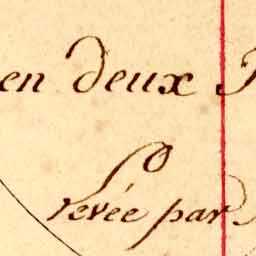 en deux
levée par